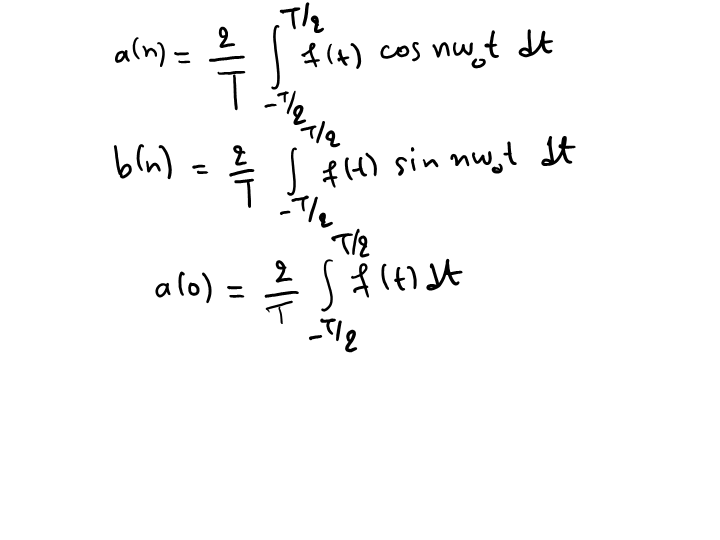 a(n) = 2/T ∫_{-T/2}^{T/2} f(t) cos nw₀t dt
b(n) = 2/T ∫_{-T/2}^{T/2} f(t) sin nw₀t dt
a(0) = 2/T ∫_{-T/2}^{T/2} f(t) dt